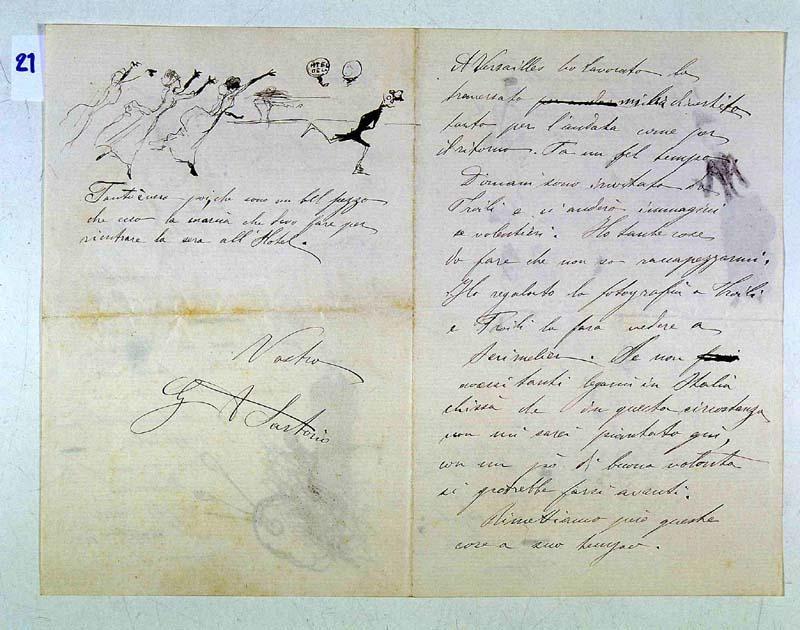 21
HOTEL
DE LA
Tant'è vero poiché sono un bel pezzo
che uso la marcia che devo fare per
rientrare la sera all'Hotel.
Vostro
G A Sartorio
A Versailles ho lavorato la
traversata mi ha divertito
tanto per l'andata come per
il ritorno. Fa un bel tempo
Domani sono invitato da
Troili e vi andrò immagini
se volentieri. Ho tante cose
da fare che non so raccapezzarmi.
Ho regalato la fotografia a Troili
e Troili la farà vedere a
Se non
avessi tanti legami in Italia
chissà che in questa circostanza
non mi sarei piantato qui,
con un pò di buona volontà
si potrebbe farsi avanti.
Rimettiamo però queste
cose a suo tempo.